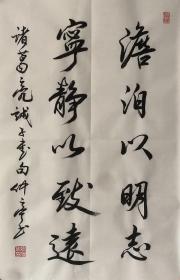 澹泊以明志
寧靜以致遠
諸葛亮誡子書句仲亭书